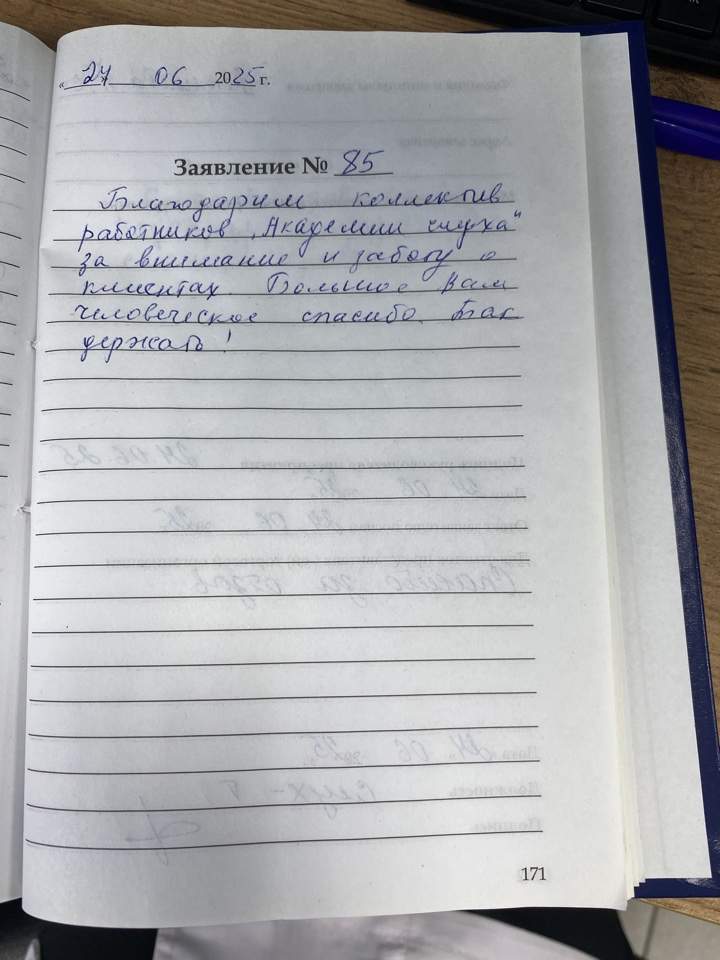 « 24 06 2025 г.
Заявление № 85
Благодарим коллектив
работников „Академии слуха"
за внимание и заботу о
клиентах. Большое Вам
человеческое спасибо. Так
держать!
171